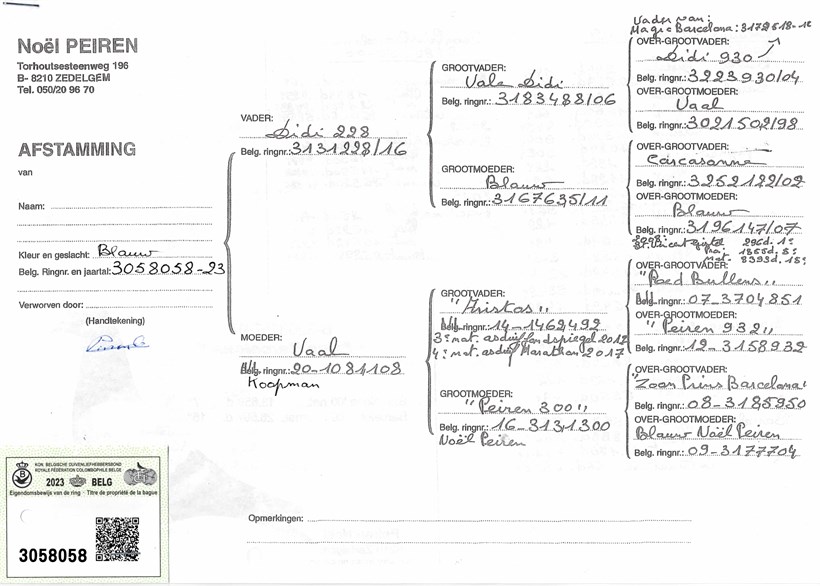 Noël PEIREN
Torhoutsesteenweg 196
B- 8210 ZEDELGEM
Tel. 050/20 96 70
AFSTAMMING
van
Naam:
Kleur en geslacht: Blauw
Belg. Ringnr. en jaartal: 3058058-23
Verworven door:
(Handtekening)
VADER:
Didi 228
Belg. ringnr.: 3131228/16
MOEDER:
Vaal
Belg. ringnr.: 20-1081108
Koopman
GROOTVADER:
Vale Didi
Belg. ringnr.: 3183488/06
GROOTMOEDER:
Blauw
Belg. ringnr.: 3167635/11
GROOTVADER:
"Aristos"
Belg. ringnr.: 14-1462492
3e nat. asduif Fondspiegel
4e nat. asduif Marathon 2017
GROOTMOEDER:
"Peiren 300"
Belg. ringnr.: 16-3131300
Noël Peiren
Vader van:
Magic Barcelona: 3172518-12
OVER-GROOTVADER:
Didi 930
Belg. ringnr.: 3223930/04
OVER-GROOTMOEDER:
Vaal
Belg. ringnr.: 3021502/98
OVER-GROOTVADER:
Carcasonne
Belg. ringnr.: 3252122/02
OVER-GROOTMOEDER:
Blauw
Belg. ringnr.: 3196147/07
St. Vincent 296d. 1e
1355d. 3e
nat. 8393d. 15e
OVER-GROOTVADER:
"Roed Bullens"
Belg. ringnr.: 07-3704851
OVER-GROOTMOEDER:
"Peiren 932"
Belg. ringnr.: 12-3158932
OVER-GROOTVADER:
"Zoon Prins Barcelona"
Belg. ringnr.: 08-3185950
OVER-GROOTMOEDER:
Blauw Noël Peiren
Belg. ringnr.: 09-3177704
Opmerkingen:
KON. BELGISCHE DUIVENLIEFHEBBERSBOND
ROYALE FÉDÉRATION COLOMBOPHILE BELGE
2023 BELG
Eigendomsbewijs van de ring - Titre de propriété de la bague
3058058